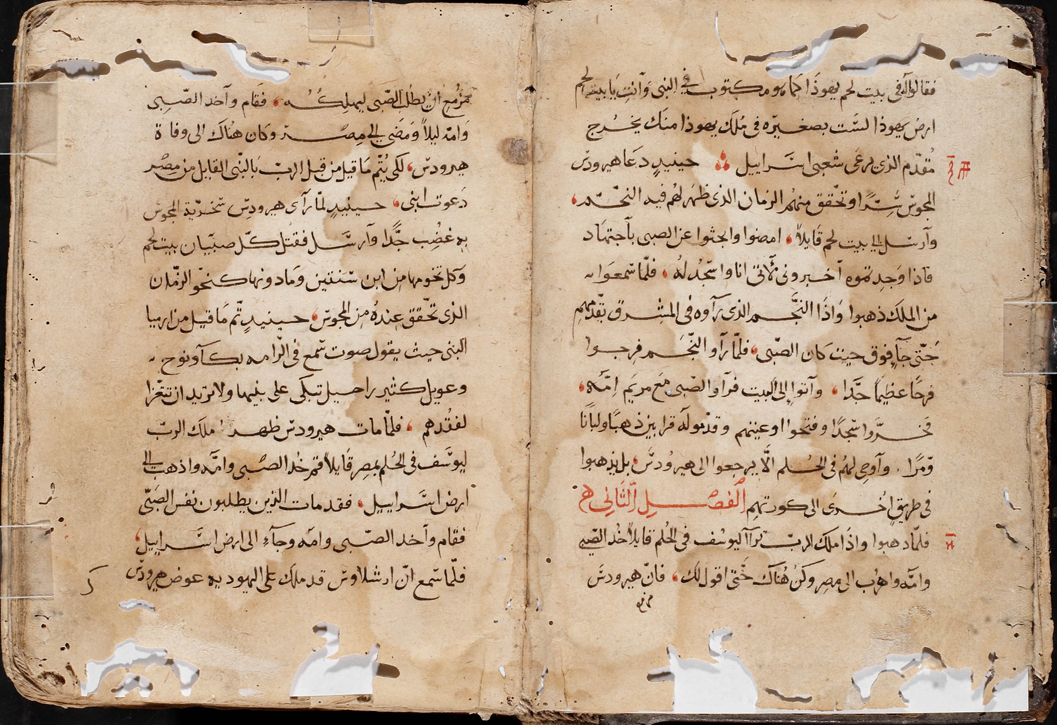 فقالوا له في بيت لحم يهوذا كما هو مكتوب في النبي وانت يا بيت لحم
ارض يهوذا لست بصغيره في ملك يهوذا منك يخرج
مقدم الذي يرعى شعبي اسراييل حينيذ دعا هيرودس
المجوس سرا وتحقق منهم الزمان الذي ظهر لهم فيه النجم
وارسل الى بيت لحم قايلا امضوا وابحثوا عن الصبي باجتهاد
فاذا وجدتموه اخبروني لاتي انا واسجد له فلما سمعوا
من الملك ذهبوا واذا النجم الذي راوه في المشرق يقدمهم
حتى جا فوق حيث كان الصبي فلما راو النجم فرحوا
فرحا عظيما جدا واتوا الى البيت فراوا الصبي مع مريم امه
فخروا سجدا وفتحوا اوعيتهم وقدموا له قرابين ذهبا ولبانا
ومرا واوحي لهم في الحلم الا يرجعوا الى هيرودس بل يذهبوا
في طريق اخرى الى كورتهم الفصل الثاني
فلما ذهبوا واذا ملاك الرب ترااا ليوسف في الحلم قايلا خذ الصبي
وامه واهرب الى مصر وكن هناك حتى اقول لك فان هيرودس
مزمع
مزمع ان يطلب الصبي ليهلكه فقام واخد الصبي
وامه ليلا ومضى الى مصر وكان هناك الى وفاة
هيرودس لكي يتم ما قيل من قبل الرب بالنبي القايل من مصر
دعوت ابني حينيذ لما راى هيرودس سخرية المجوس
به غضب جدا وارسل فقتل كل صبيان بيت لحم
وكل تخومها من ابن سنتين وما دونها كنحو الزمان
الذي تحقق عنده من المجوس حينيذ تم ما قيل من ارميا
النبي حيث يقول صوت سمع في الرامه بكا ونوح
وعويل كثير راحيل تبكي على بنيها ولا تريد ان تتعزا
لفقدهم فلما مات هيرودس ظهر ملاك الرب
ليوسف في الحلم بمصر قايلا قم خذ الصبي وامه واذهب الى
ارض اسراييل فقد مات الذين يطلبون نفس الصبي
فقام واخد الصبي وامه وجاء الى ارض اسراييل
فلما سمع ان ارشلاوس قد ملك على اليهوديه عوض هيرودس